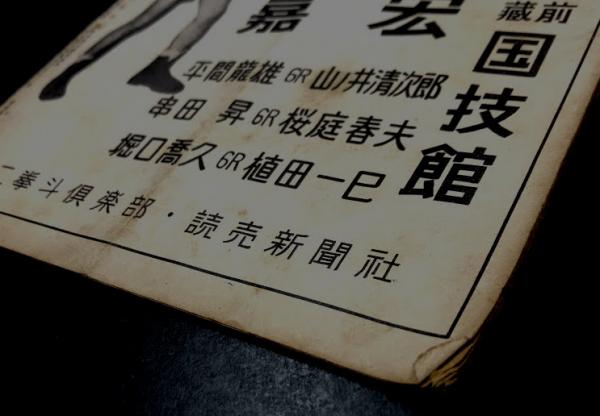 蔵前
国技館
嘉 宏
平間龍雄 6R 山ノ井清次郎
串田 昇 6R 桜庭春夫
堀口喬久 6R 植田一巳
拳斗倶楽部・読売新聞社